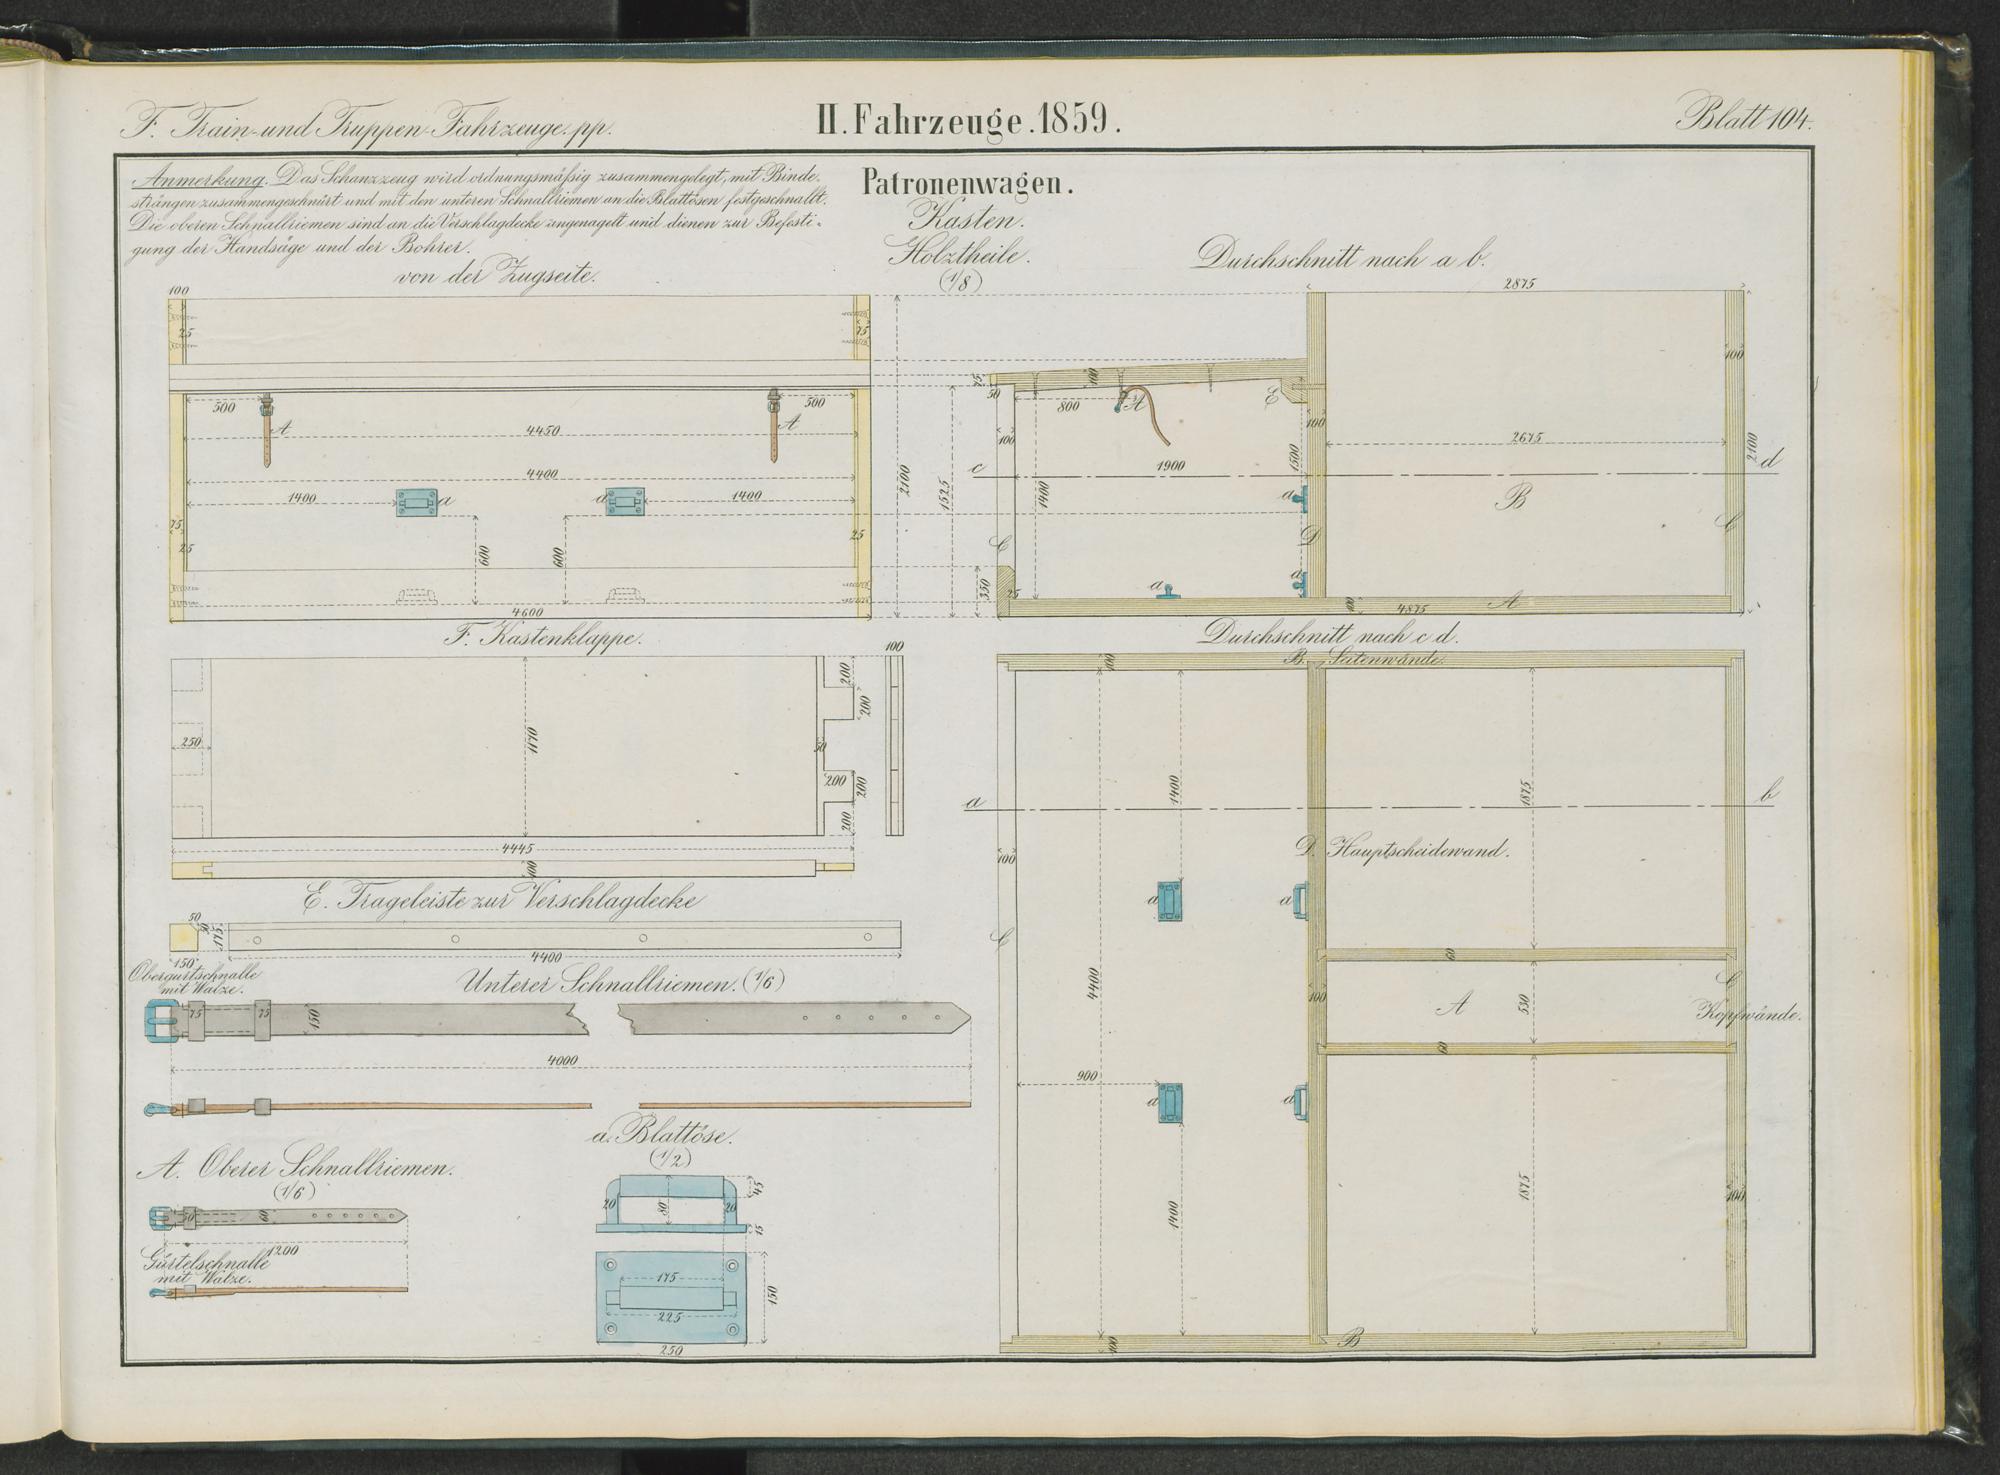 F. Train- und Truppen-Fahrzeuge. pp.
II. Fahrzeuge. 1859.
Blatt 104.
Anmerkung. Das Schanzzeug wird ordnungsmäßig zusammengelegt, mit Binde-
strängen zusammengeschnürt und mit den unteren Schnallriemen an die Blattösen festgeschnallt.
Die oberen Schnallriemen sind an die Verschlagdecke angenagelt und dienen zur Befesti-
gung der Handsäge und der Bohrer.
Patronenwagen.
Kasten.
Holztheile.
(1/8)
von der Zugseite.
100
25
75
500
A
500
A
4450
4400
1400
a
a
1400
75
25
25
600
600
4600
2100
1525
Durchschnitt nach a b.
2875
75
50
100
800
A
E
100
100
100
2675
2100
c
1900
1500
d
1400
a
B
C
D
C
a
a
350
25
100
4875
A
F. Kastenklappe.
100
200
200
250
1170
50
200
200
200
4445
100
E. Trageleiste zur Verschlagdecke
50
50
175
150
4400
Obergurtschnalle
mit Walze.
Unterer Schnallriemen. (1/6)
75
75
150
4000
A. Oberer Schnallriemen.
(1/6)
50
60
1200
Gürtelschnalle
mit Walze.
a. Blattöse.
(1/2)
45
20
80
20
15
175
150
225
250
Durchschnitt nach c d.
100
B. Seitenwände.
1400
1875
a
b
100
D. Hauptscheidewand.
a
a
C
60
4400
100
A
530
C
Kopfwände.
60
900
a
a
1400
1875
100
100
B